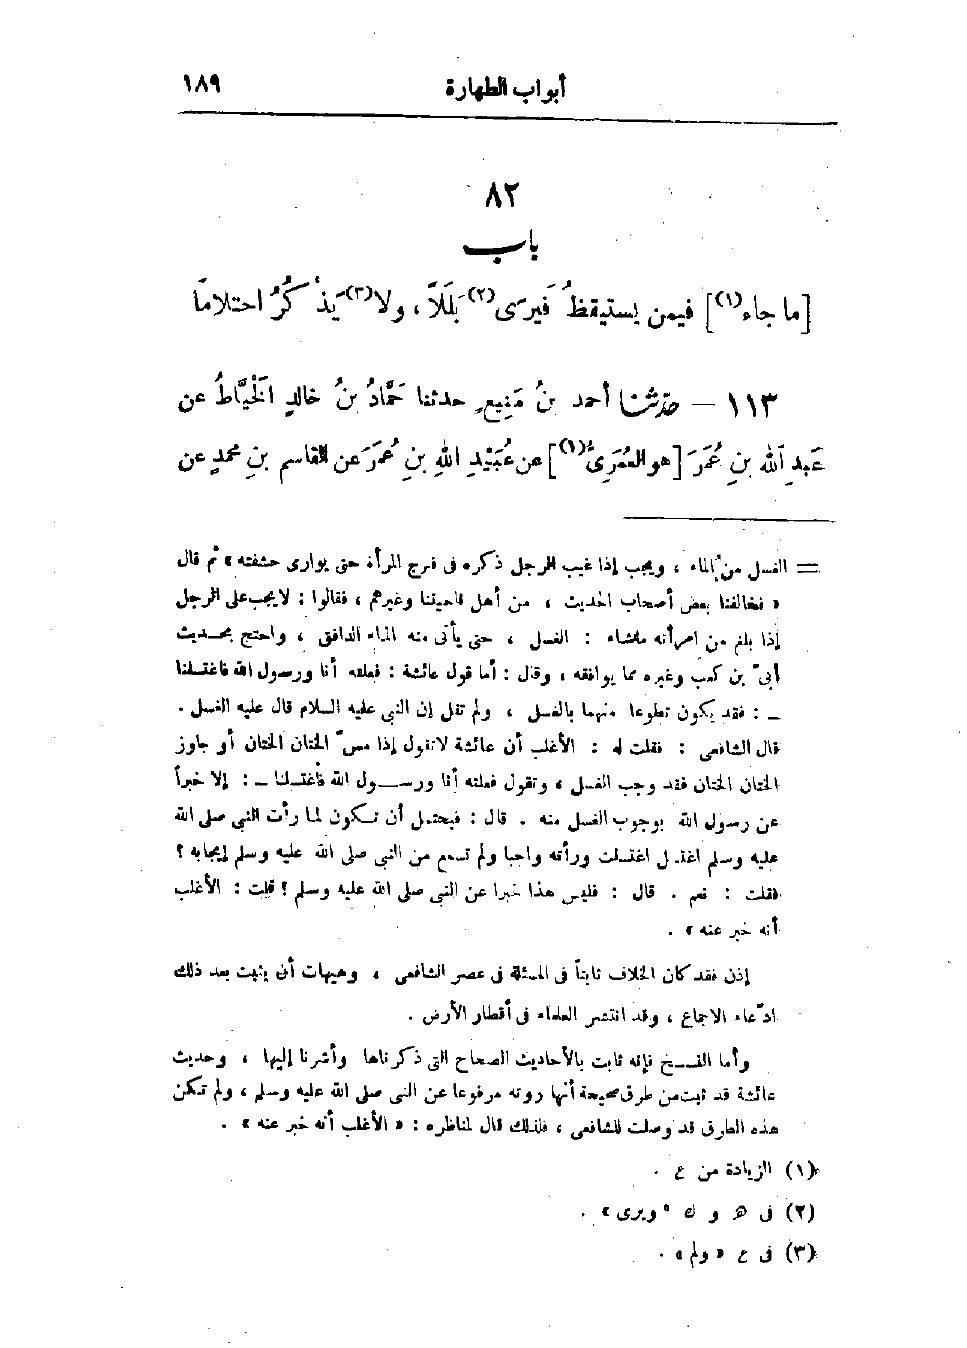 أبواب الطهارة ١٨٩
٨٢
باب
[ما جاء(١)] فيمن يستيقظُ فَيرَى(٢) بَلَلًا ، ولا(٣) يَذْكُرُ احتلامًا
١١٣ – حدثنا أحمد بنُ مَنِيعٍ حدثنا حَمَّادُ بنُ خالدٍ الخَيَّاطُ عن
عَبدِ اللهِ بنِ عُمَرَ [هو العُمَرِىُّ(١)] عن عُبَيْدِ اللهِ بنِ عُمَرَ عن القاسم بنِ محمدٍ عن
= الغسل من الماء ، ويجب إذا غيب الرجل ذكره فى فرج المرأة حتى يوارى حشفته » ثم قال
« فخالفنا بعض أصحاب الحديث ، من أهل ناحيتنا وغيرهم ، فقالوا : لا يجب على الرجل
إذا بلغ من امرأته ماشاء : الغسل ، حتى يأتى منه الماء الدافق ، واحتج بحديث
أبىّ بن كعب وغيره مما يوافقه ، وقال : أما قول عائشة : فعلته أنا ورسول الله فاغتسلنا
ـ : فقد يكون تطوعا منهما بالغسل ، ولم تقل إن النبى عليه السلام قال عليه الغسل .
قال الشافعى : فقلت له : الأغلب أن عائشة لاتقول إذا مسّ الختان الختان أو جاوز
الختان الختان فقد وجب الغسل ، وتقول فعلته أنا ورســول الله فاغتسلنا ـ : إلا خبراً
عن رسول الله بوجوب الغسل منه . قال : فيحتمل أن تكون لما رأت النبى صلى الله
عليه وسلم اغتسل اغتسلت ورأته واجبا ولم تسمع من النبى صلى الله عليه وسلم إيجابه ؟
فقلت : نعم . قال : فليس هذا خبرا عن النبى صلى الله عليه وسلم ؟ قلت : الأغلب
أنه خبر عنه » .
إذن فقد كان الخلاف ثابتاً فى المسئلة فى عصر الشافعى ، وهيهات أن يثبت بعد ذلك
ادّعاء الاجماع ، وقد انتشر العلماء فى أقطار الأرض .
وأما النســخ فإنه ثابت بالأحاديث الصحاح التى ذكرناها وأشرنا إليها ، وحديث
عائشة قد ثبت من طرق صحيحة أنها روته مرفوعا عن النبى صلى الله عليه وسلم ، ولم تكن
هذه الطرق قد وصلت للشافعى ، فلذلك قال لمناظره : « الأغلب أنه خبر عنه » .
(١) الزيادة من ع .
(٢) فى هـ و ك « ويرى » .
(٣) فى ع « ولم » .